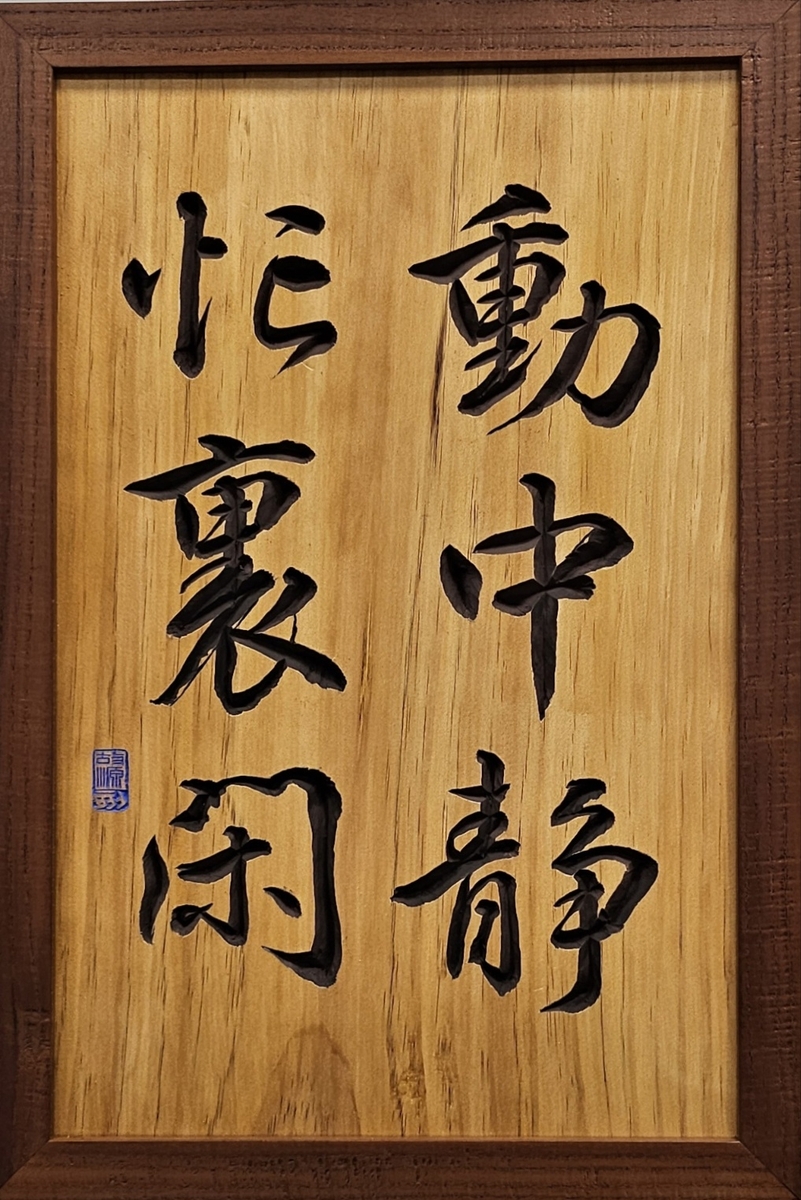 動中静
忙裏閑